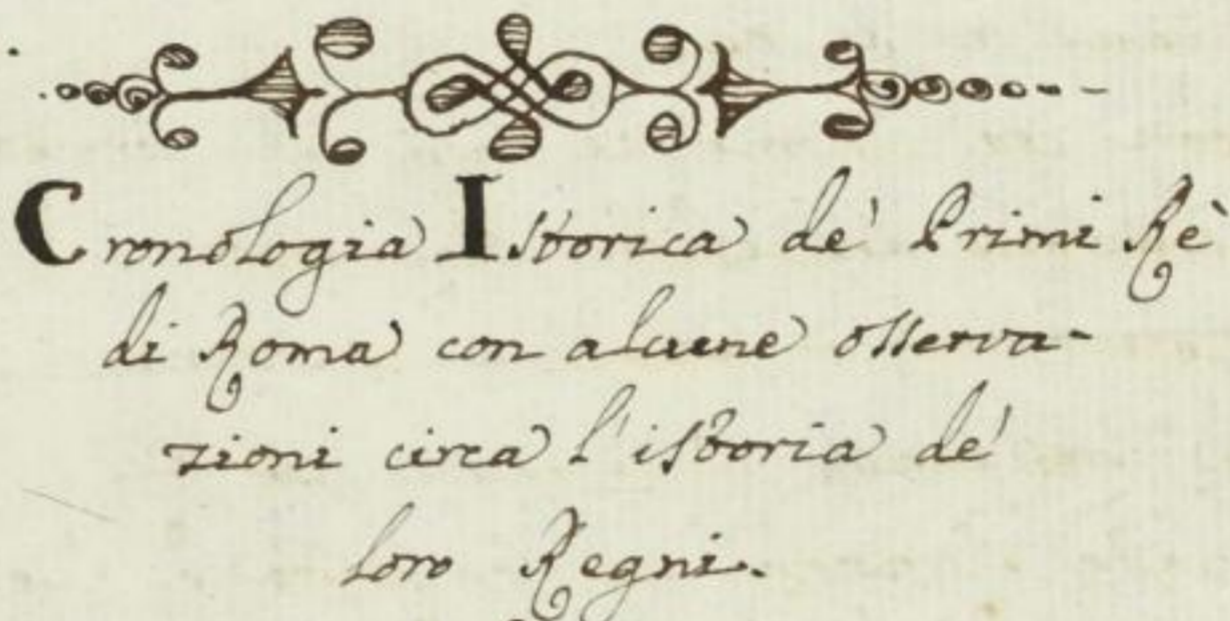 Cronologia Istorica de' Primi Rè
di Roma con alcune osserva-
zioni circa l'istoria de'
loro Regni.